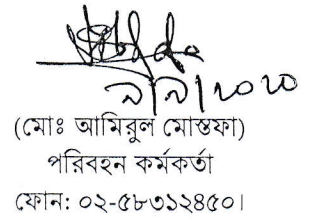 ৯/৯/২০২০
(মোঃ আমিরুল মোস্তফা)
পরিবহন কর্মকর্তা
ফোন: ০২-৫৮৩১২৪৫০।